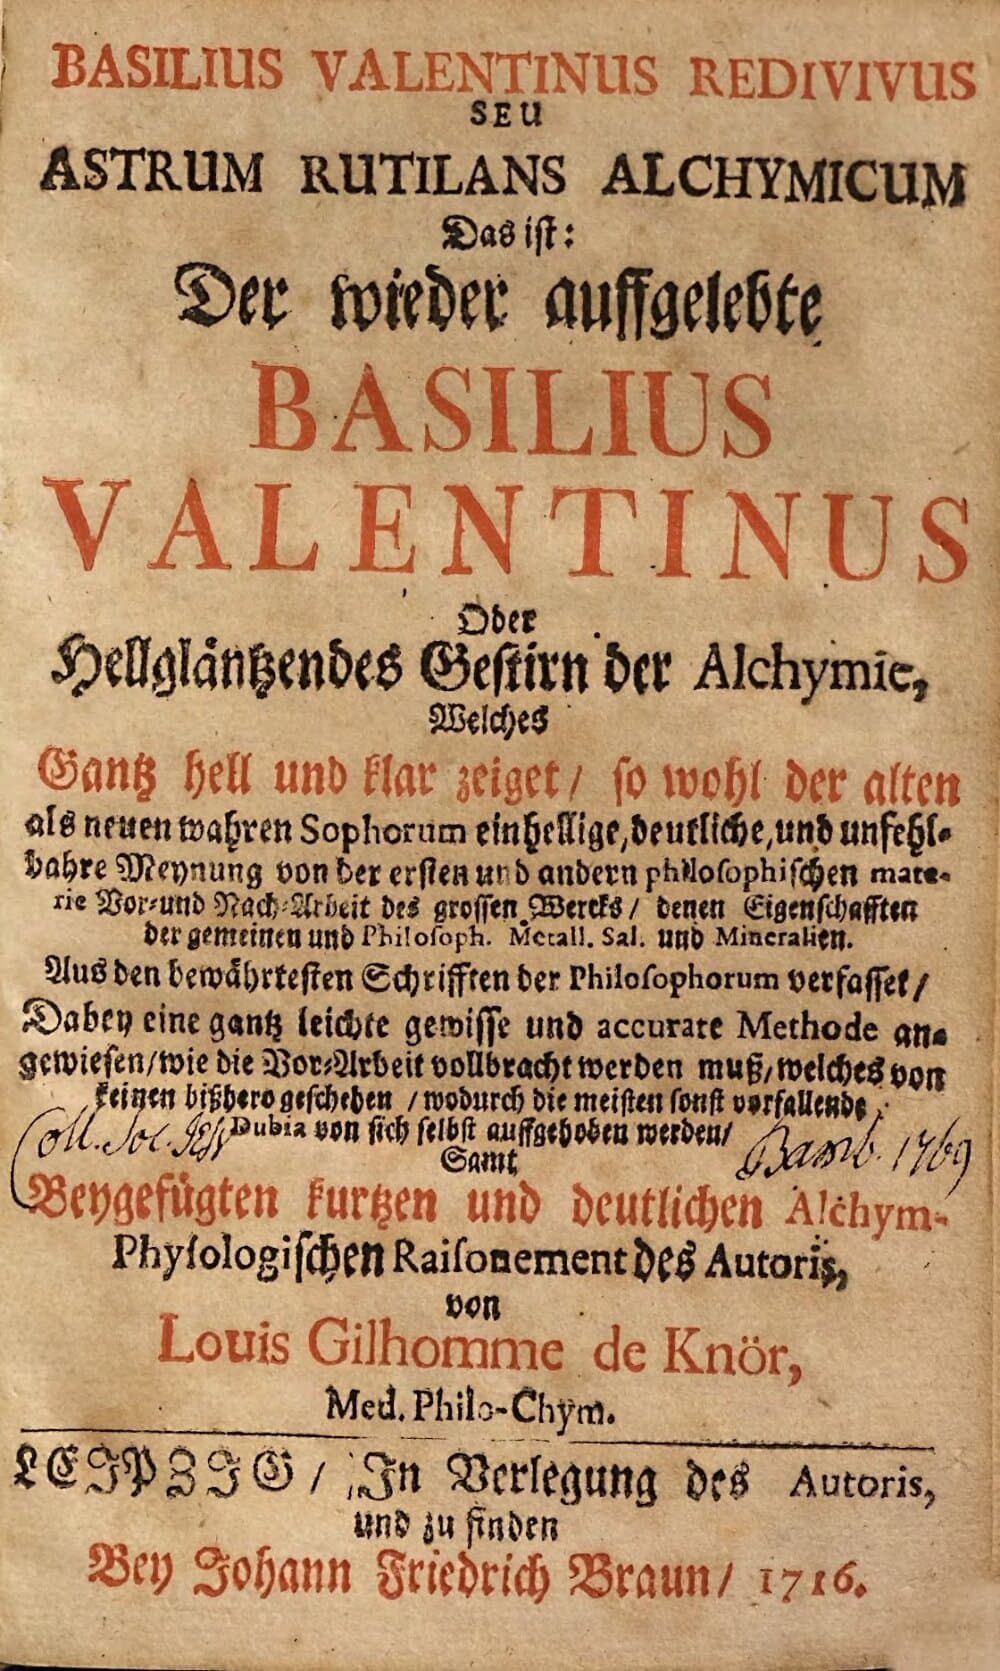 BASILIUS VALENTINUS REDIVIVUS
SEU
ASTRUM RUTILANS ALCHYMICUM
Das ist:
Der wieder auffgelebte
BASILIUS
VALENTINUS
Oder
Hellgläntzendes Gestirn der Alchymie,
Welches
Gantz hell und klar zeiget / so wohl der alten
als neuen wahren Sophorum einhellige, deutliche, und unfehl-
bahre Meynung von der ersten und andern philosophischen mate-
rie Vor-und Nach-Arbeit des grossen Wercks / denen Eigenschafften
der gemeinen und Philosoph. Metall. Sal. und Mineralien.
Aus den bewährtesten Schrifften der Philosophorum verfasset /
Dabey eine gantz leichte gewisse und accurate Methode an-
gewiesen / wie die Vor-Arbeit vollbracht werden muß, welches von
keinen bißhero geschehen / wodurch die meisten sonst vorfallende
Coll. Soc. Jesu Dubia von sich selbst auffgehoben werden / Bamb. 1769
Samt
Beygefügten kurtzen und deutlichen Alchym-
Physologischen Raisonement des Autoris,
von
Louis Gilhomme de Knör,
Med. Philo-Chym.
LEIPZIG / In Verlegung des Autoris,
und zu finden
Bey Johann Friedrich Braun / 1716.